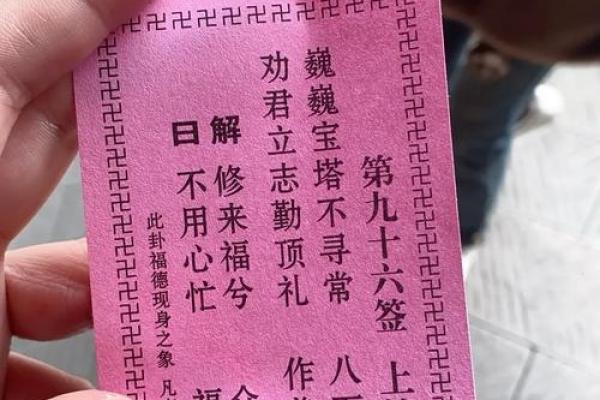 第九十六签 上
巍巍宝塔不寻常 八
劝君立志勤顶礼 作
解曰
修来福兮
不用心忙 福
此卦福德现身之象 凡